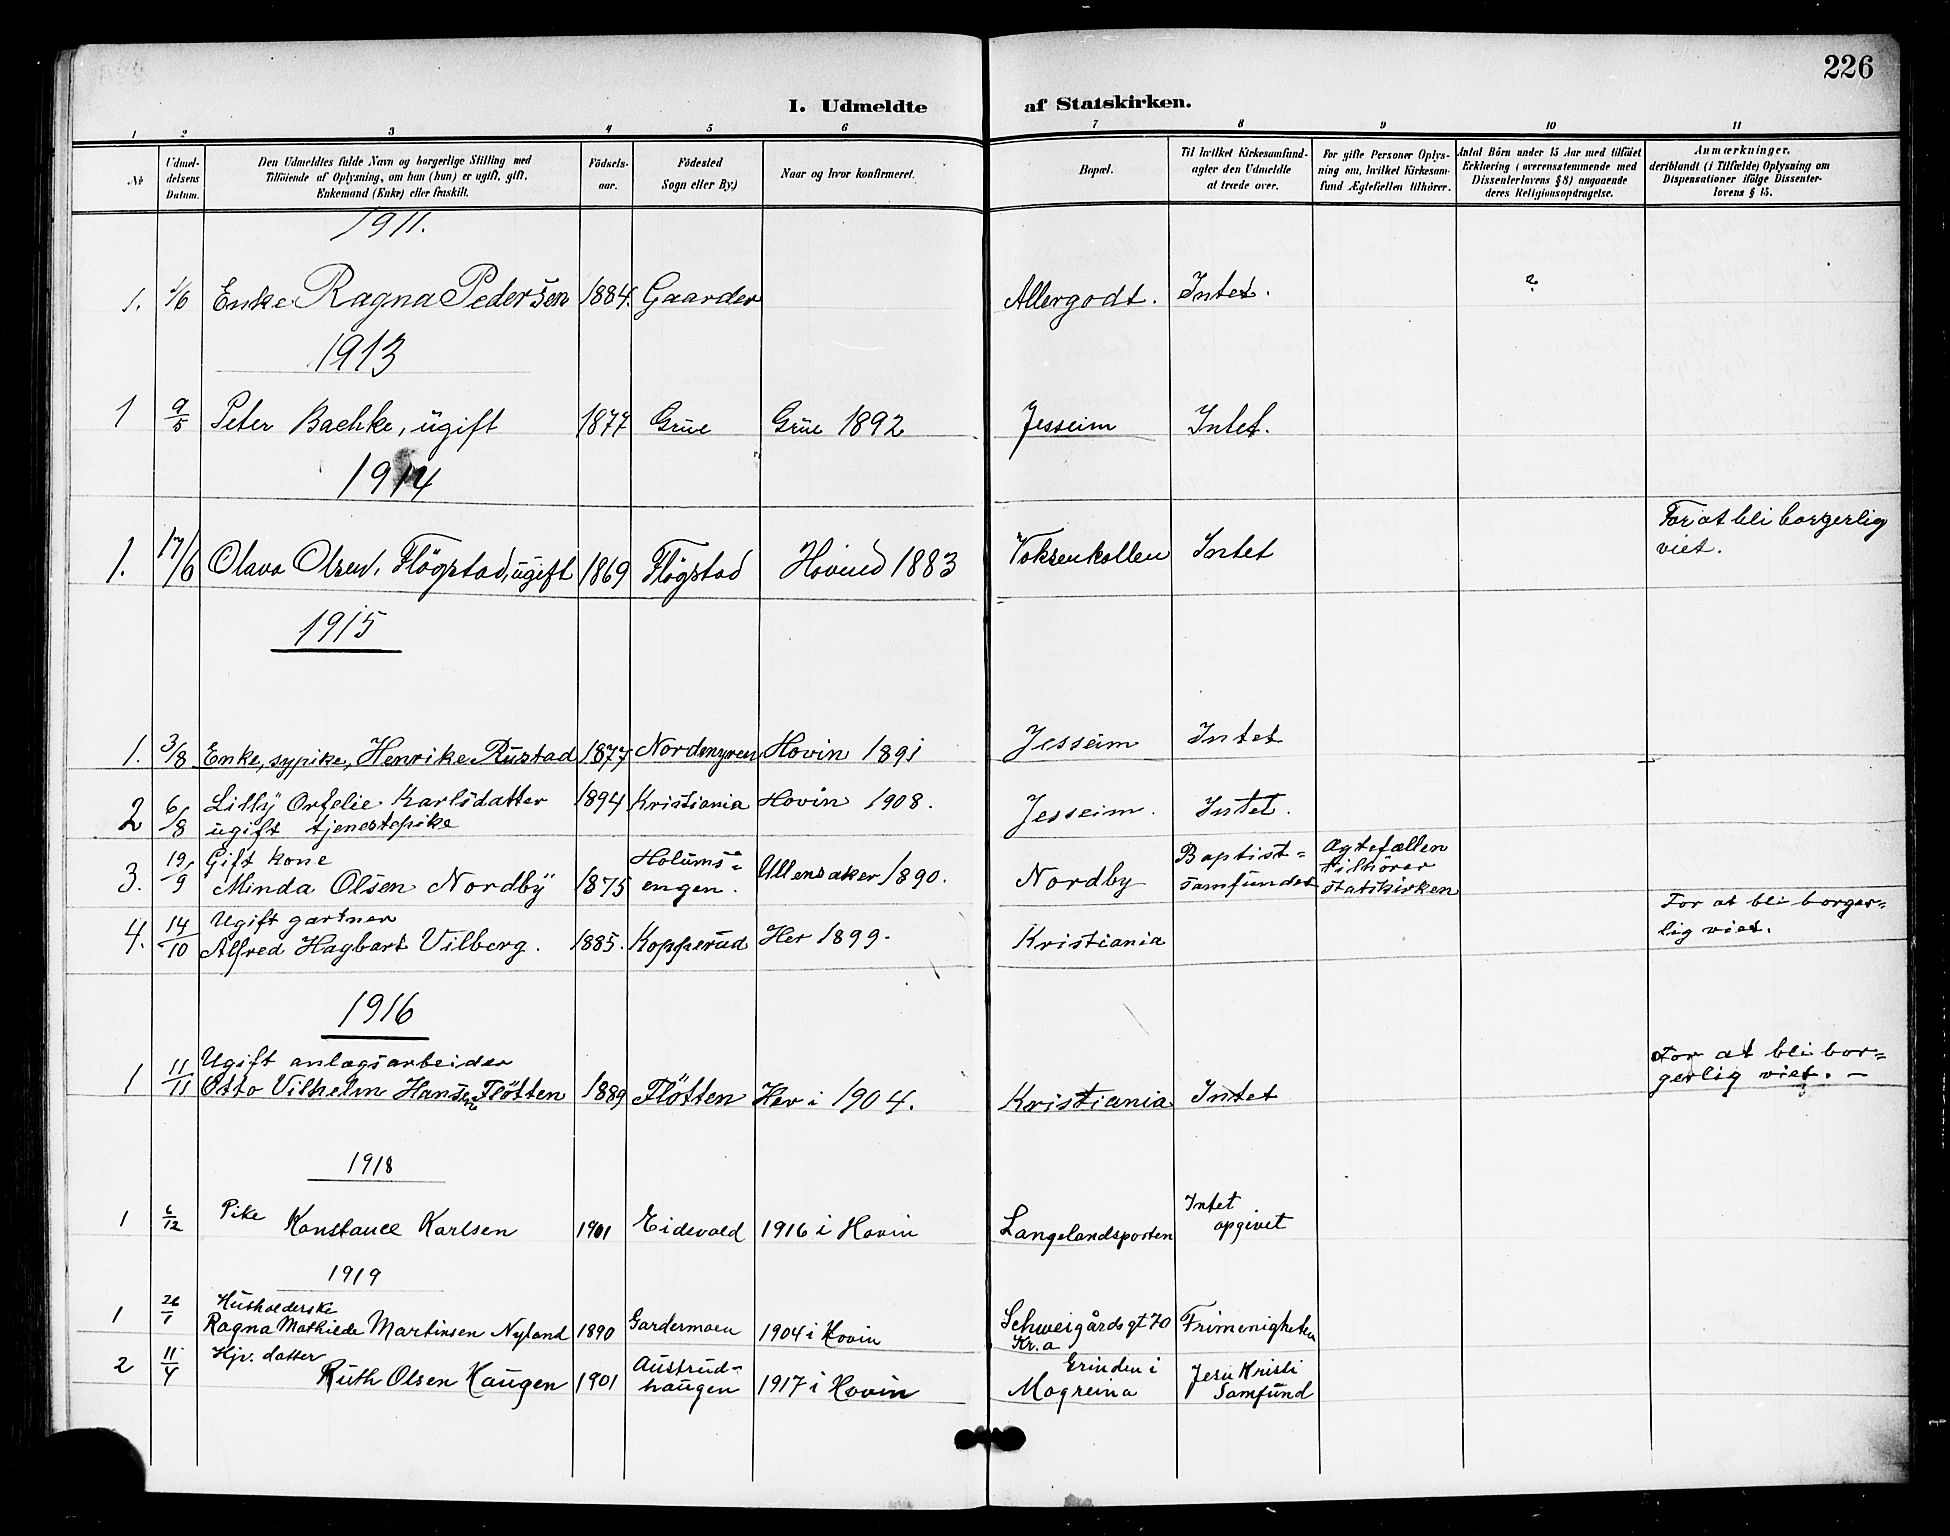 226
I. Udmeldte af Statskirken.
1 2 3 4 5 6 7 8 9 10 11
No
Udmel-
delsens
Datum.
Den Udmeldtes fulde Navn og borgerlige Stilling med
Tilföiende af Oplysning, om han (hun) er ugift, gift,
Enkemand (Enke) eller fraskilt.
Födsels-
aar.
Födested
Sogn eller By.)
Naar og hvor konfirmeret.
Bopæl.
Til hvilket Kirkesamfund-
agter den Udmeldte
at træde over.
For gifte Personer Oplys-
ning om, hvilket Kirkesam-
fund Ægtefællen tilhörer.
Antal Börn under 15 Aar med tilföiet
Erklæring (overensstemmende med
Dissenterlovens § 8) angaaende
deres Religionsopdragelse.
Anmærkninger,
deriblandt (i Tilfælde) Oplysning om
Dispensationer ifölge Dissenter-
lovens § 15.
1911.
1. 1/6 Enke Ragna Pedersen 1884. Gaarder Allergodt. Intet. ?
1913
1 9/5 Peter Bachke, ugift 1877 Grue Grue 1892 Jesseim Intet.
1914
For at bli borgerlig
viet.
1. 17/6 Olava Olsen, Flögstad, ugift 1869 Flögstad Hovind 1883 Voksenkollen Intet
1915
1. 3/8 Enke, sypike, Henrike Rustad 1877 Nordmyren Hovin 1891 Jesseim Intet
2 6/8 Lilly Orfelie Karlsdatter 1894 Kristiania Hovin 1908. Jesseim. Intet.
ugift tjenestepike
3. 19/9 Gift kone
Minda Olsen Nordby 1875 Holums=
engen. Ullensaker 1890. Nordby Baptist=
samfundet Agtefællen
tilhörer
statskirken
4. 14/10 Ugift gartner
Alfred Hagbart Vilberg. 1885. Kopperud Her 1899. Kristiania
For at bli borger=
lig viet.
1916
1 11/11 Ugift anlægsarbeider
Otto Vilhelm Hansen Flötten 1889 Flötten Her i 1904. Kristiania Intet
For at bli bor=
gerlig viet. –
1918
1 6/12 Pike
Konstance Karlsen 1901 Eidsvold 1916 i Hovin Langelandsporten Intet
opgivet
1919
1 26/1 Husholderske
Ragna Mathilde Martinsen Nyland 1890 Gardermoen 1904 i Hovin Schweigårds gt 70
Kr.a Frimenigheten
2 11/4 Hjv. datter
Ruth Olsen Haugen 1901 Austrud-
haugen 1917 i Hovin
Mogreina Jesu Kristi
Samfund